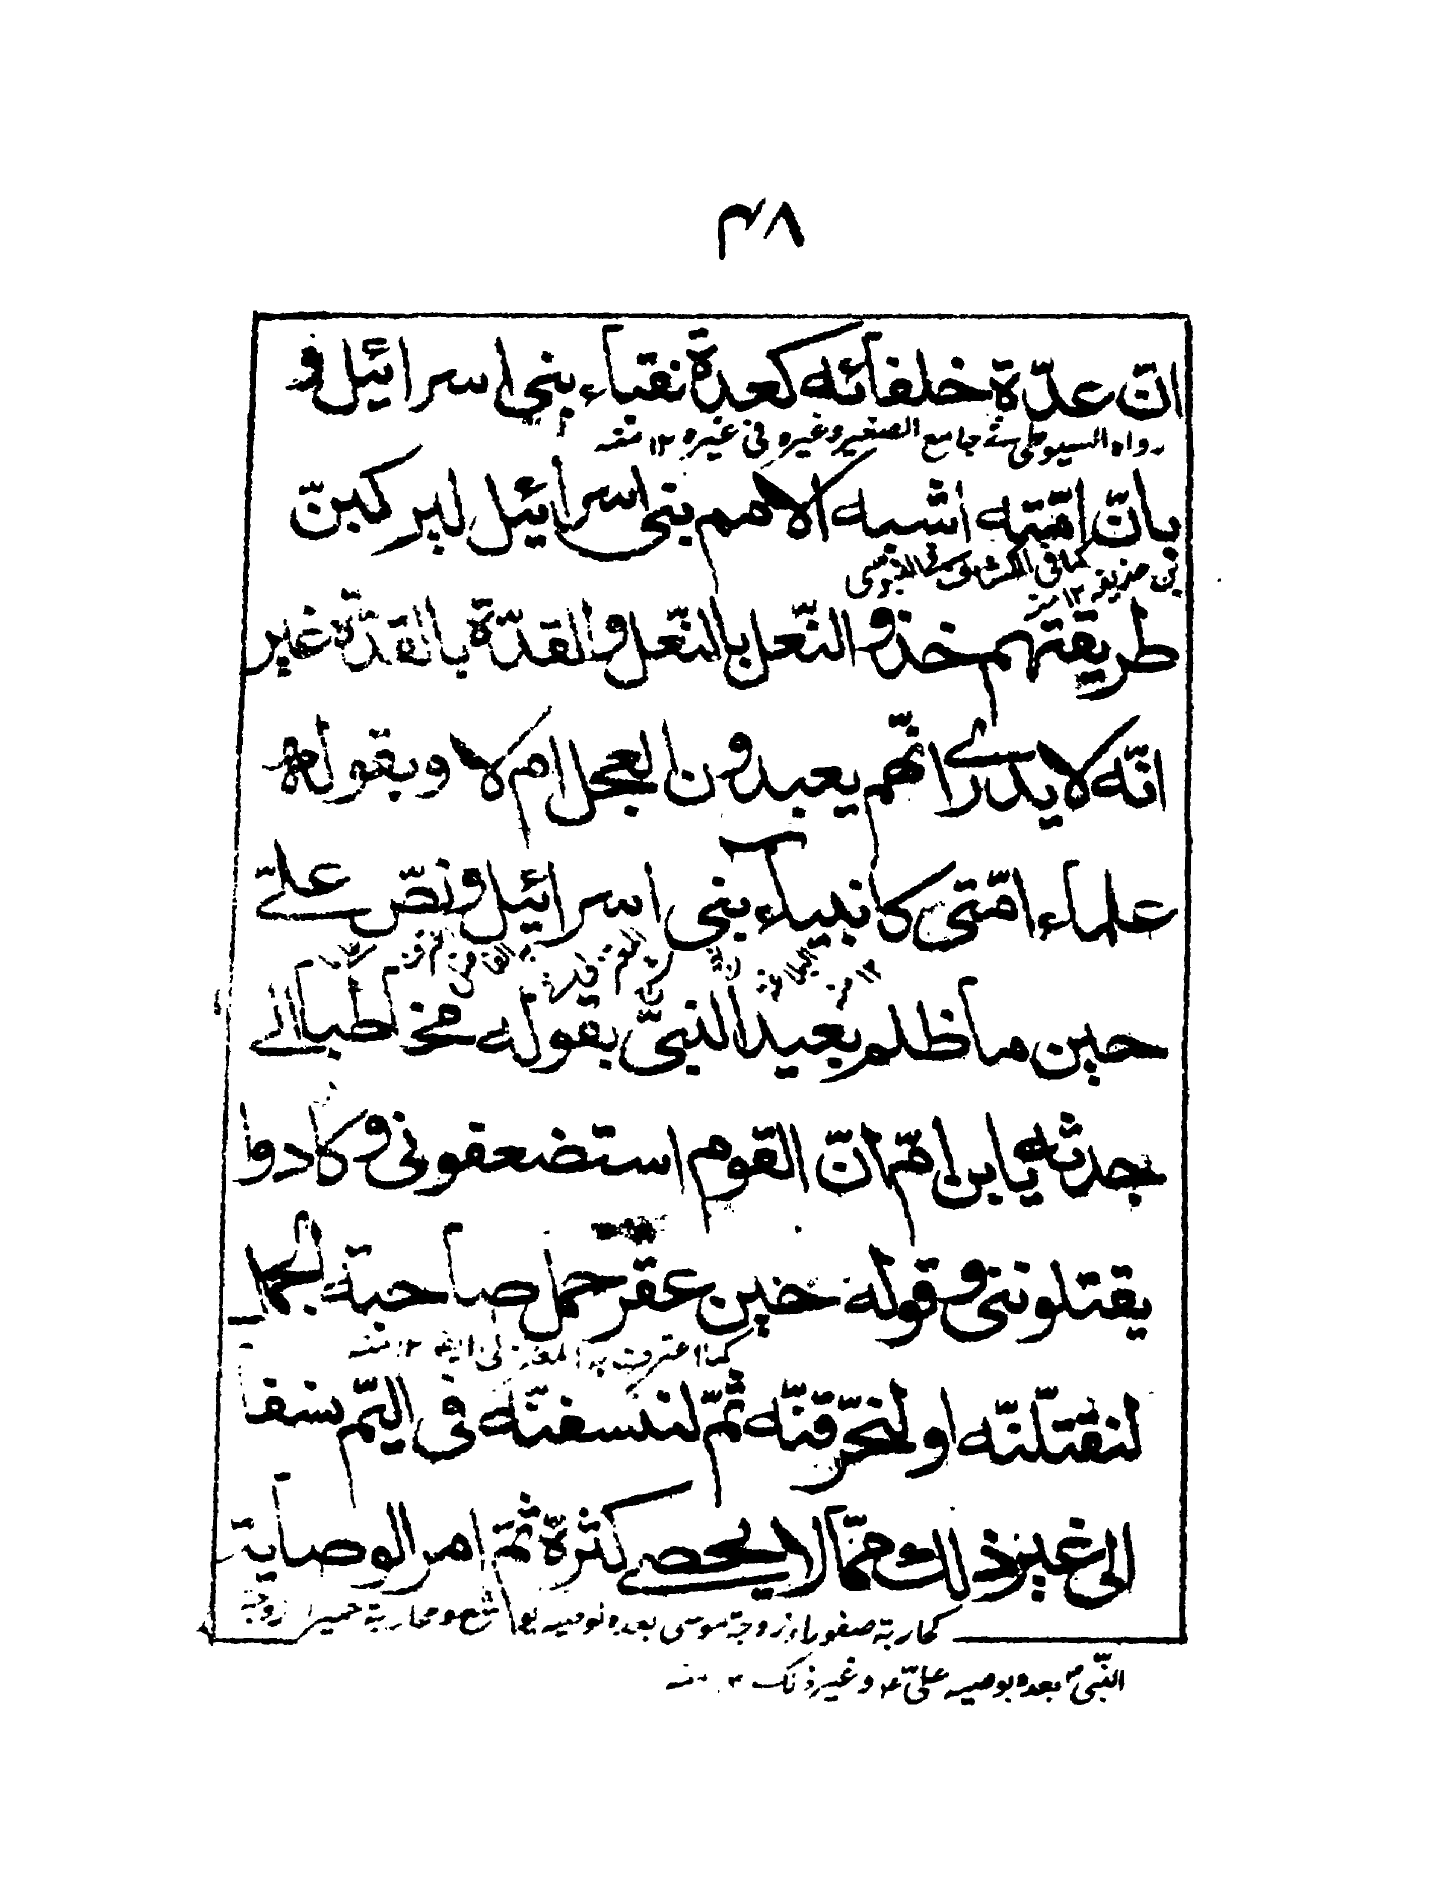 ۴۸
انّ عدّة خلفائه كعدة نقباء بنى اسرائيل و
رواه السيوطى فے جامع الصغير و غيره فى غيره ۱۲ منه
بانّ امّته اشبه الامم بنى اسرائيل ليركبنّ
كما فى
طريقتهم حذو النّعل بالنّعل و القدّة بالقدّة غير
انّه لا يدرے انّهم يعبدون العجل ام لا و بقوله
علماء امّتى كانبياء بنى اسرائيل و نصّ علىّ
۱۲ منه
حين ما ظلم بعيد النبىّ بقوله مخاطبا الے
جدثه يا بن امّ انّ القوم استضعفونى و كادوا
يقتلوننى و قوله حين عقر جمل صاحبة الجمل
كما اعترف به
لنقتلنّه او لنحرّقنّه ثمّ لننسفنّه فى اليمّ نسفا
الى غير ذلك ممّا لا يحصے كثرة ثمّ امر الوصاية
كمحاربة صفورا زوجة موسى بعده لوصيه يوشع و محاربة حميرا زوجة
النّبى بعده بوصيه علىّ ع و غير ذلك ۱۲ منه